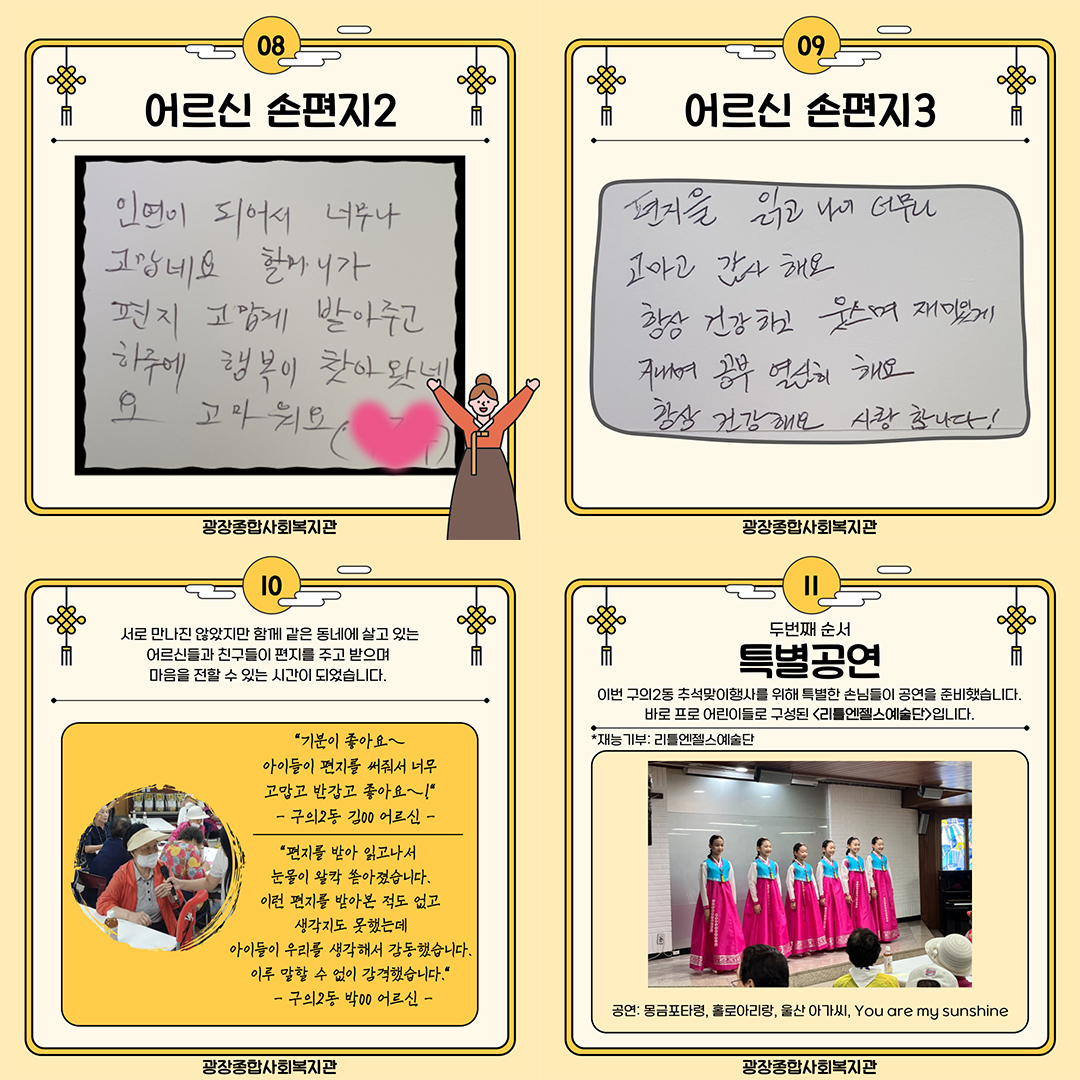 08
어르신 손편지2
인연이 되어서 너무나
고맙네요 할머니가
편지 고맙게 받아주고
하루에 행복이 찾아왔네
요 고마워요
광장종합사회복지관
09
어르신 손편지3
편지을 읽고 나니 너무나
고마고 감사 해요
항상 건강하고 웃스며 재미있게
지내며 공부 열심히 해요
항상 건강해요 사랑 합니다!
광장종합사회복지관
10
서로 만나진 않았지만 함께 같은 동네에 살고 있는
어르신들과 친구들이 편지를 주고 받으며
마음을 전할 수 있는 시간이 되었습니다.
"기분이 좋아요~
아이들이 편지를 써줘서 너무
고맙고 반갑고 좋아요~!"
- 구의2동 김00 어르신 -
"편지를 받아 읽고나서
눈물이 왈칵 쏟아졌습니다.
이런 편지를 받아본 적도 없고
생각지도 못했는데
아이들이 우리를 생각해서 감동했습니다.
이루 말할 수 없이 감격했습니다."
- 구의2동 박00 어르신 -
광장종합사회복지관
11
두번째 순서
특별공연
이번 구의2동 추석맞이행사를 위해 특별한 손님들이 공연을 준비했습니다.
바로 프로 어린이들로 구성된 <리틀엔젤스예술단>입니다.
*재능기부: 리틀엔젤스예술단
공연: 몽금포타령, 홀로아리랑, 울산 아가씨, You are my sunshine
광장종합사회복지관